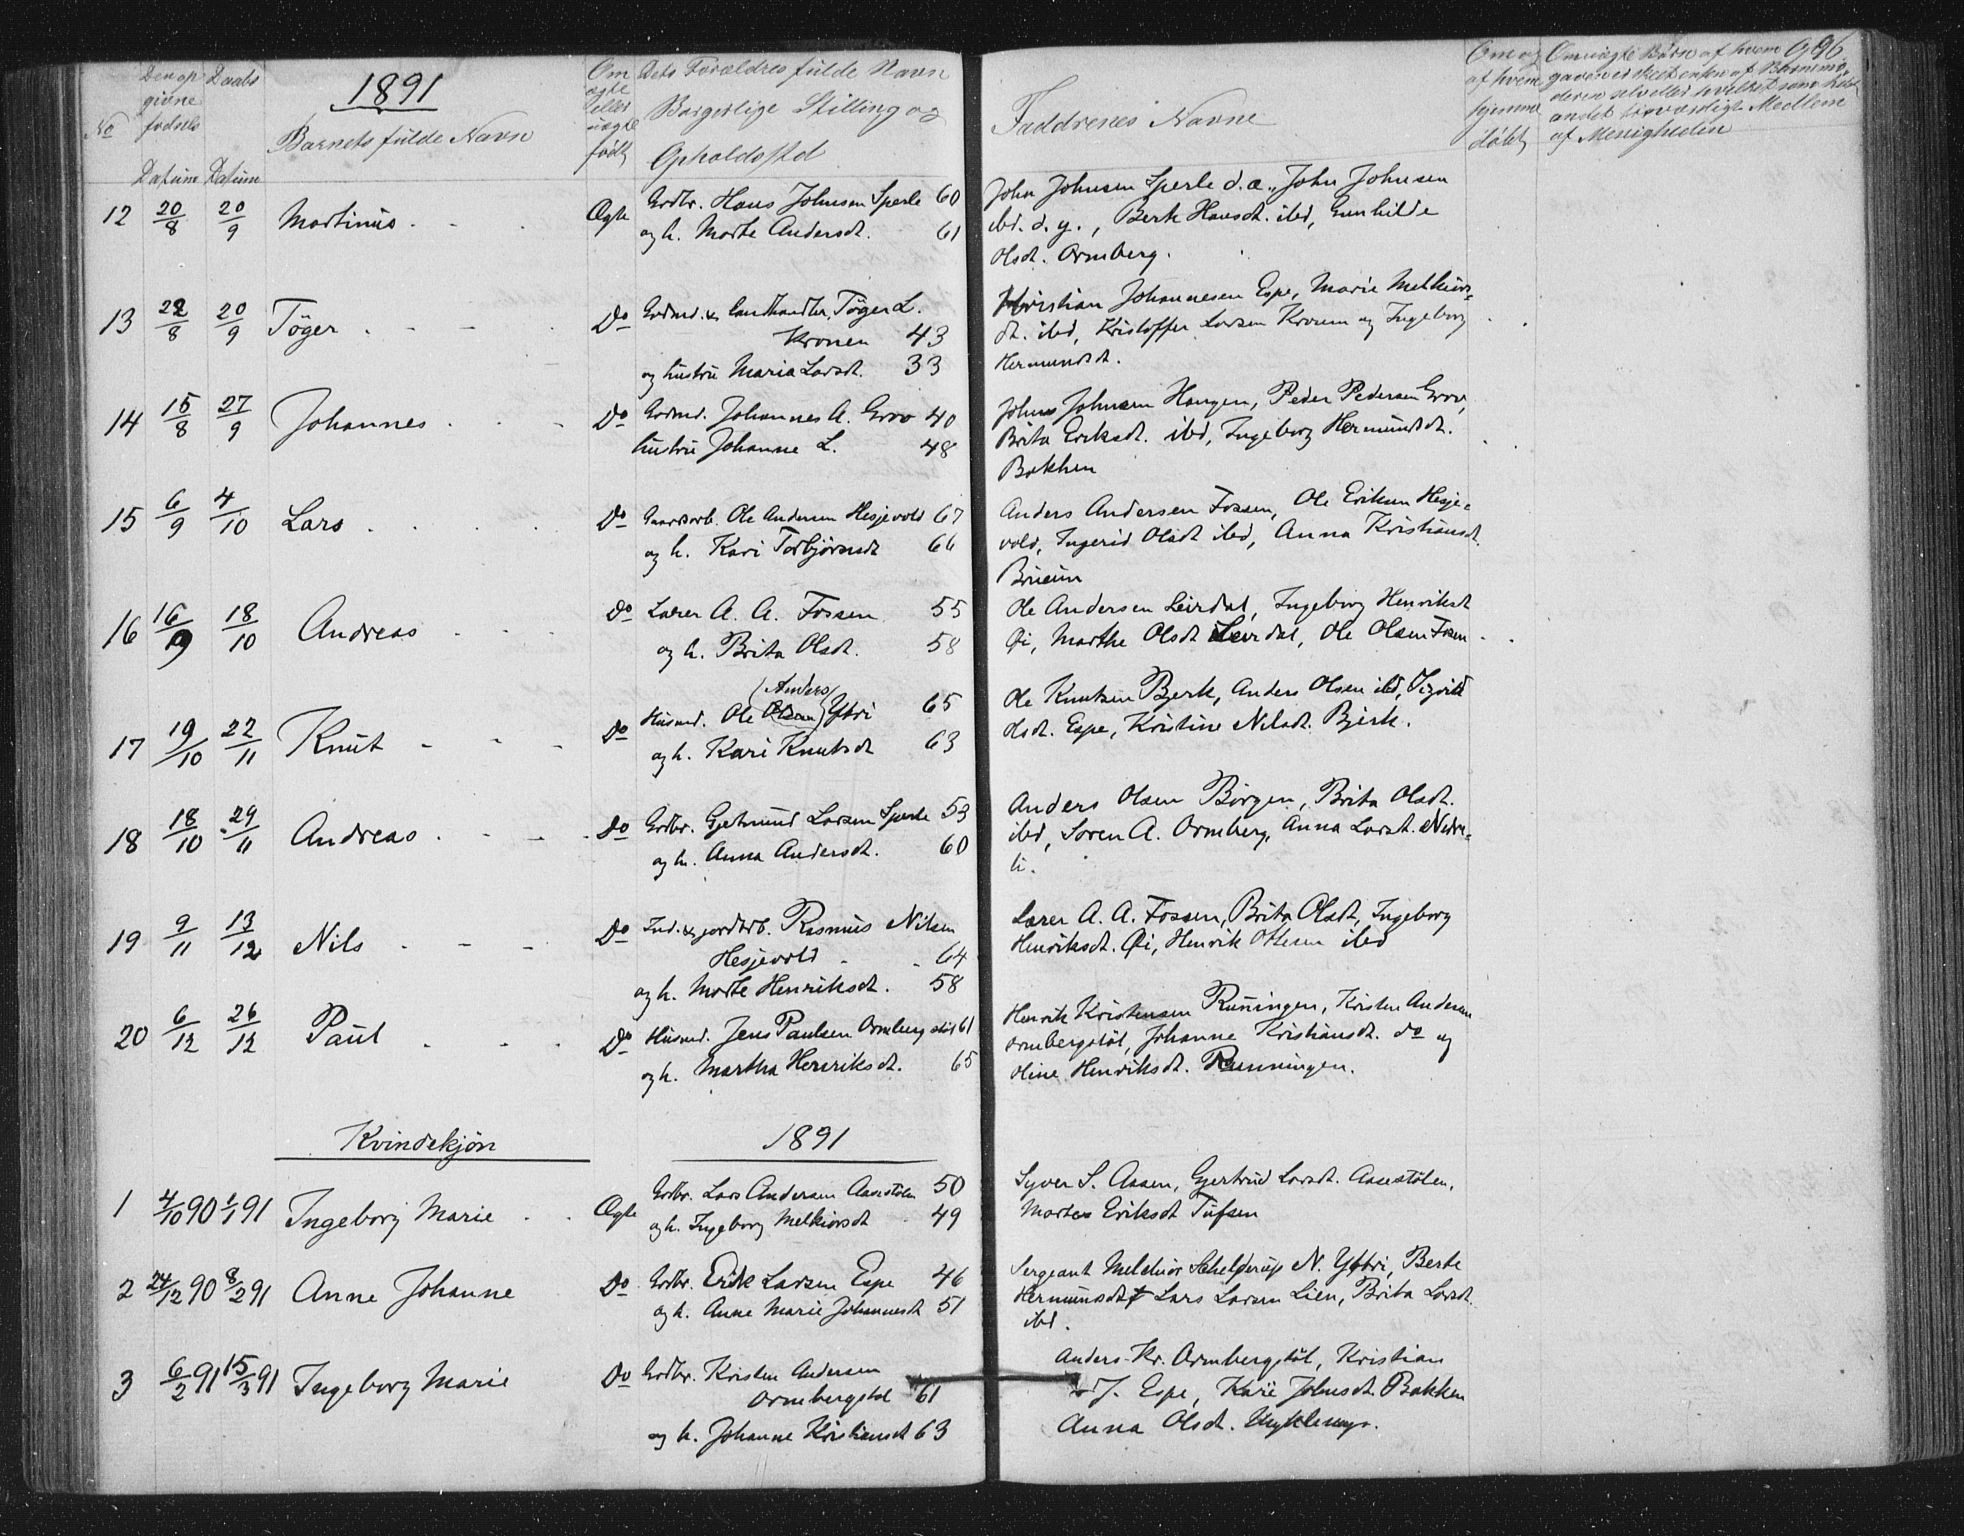 1891
No
Den op
givne
fødsels
Datum
Daabs
Datum
Barnets fulde Navn
Om
ægte
eller
uægte
født
Dets Forældres fulde Navn
Borgerlige Stilling og
Opholdssted
Faddrenes Navne
Om og
af hvem
hjemme
døbt
96
af Menigheden
12 20/8 20/9 Martinus Ægte Grdbr. Hans Johnsen Sperle 60
og h. Marte Andersdt. 61
John Johnsen Sperle d.æ., John Johnsen
ibd. d. y., Berte Hansdt. ibd, Gunhilde
Olsdt. Ormberg.
13 22/8 20/9 Tøger Do Grdmd. & Landhandler Tøger L.
Kronen 43
og hustru Maria Larsdt. 33
Kristian Johannesen Espe, Marie Melkiors-
dt. ibd, Kristoffer Larsen Kronen og Ingeborg
Hermundsdt.
14 15/8 27/9 Johannes Do Grdmd. Johannes A. Grov 40
hustru Johanne L. 48
Johns Johnsen Haugen, Peder Pedersen Grov,
Brita Eriksdt. ibd, Ingeborg Hermundsdt.
Bakken
15 6/9 4/10 Lars Do Gaardarb. Ole Andersen Hesjevold 67
og h. Kari Torbjørnsdt 66
Anders Andersen Fossen, Ole Eriksen Hesje-
vold, Ingerid Olsdt ibd, Anna Kristiansdt.
Bruum
16 16/9 18/10 Andreas Do Lærer A. A. Fossen 55
og h. Brita Olsdt. 58
Ole Andersen Leirdal, Ingeborg Henriksdt
Øi, Marthe Olsdt Leirdal, Ole Olsen Fossen
17 19/10 22/11 Knut Do Husmd. Ole Olsen (Anders) Ytri 65
og h. Kari Knutsdt 63
Ole Knutsen Bjerk, Anders Olsen ibd, Sigrid
Olsdt. Espe, Kristine Nilsdt. Bjerk.
18 18/10 29/11 Andreas Do Grdbr. Gjetmund Larsen Sperle 53
og h. Anna Andersdt. 60
Anders Olsen Børgen, Brita Olsdt.
ibd, Søren A. Ormberg, Anna Larsdt. Nedre-
li.
19 9/11 13/12 Nils Do Ind. & jordarb. Rasmus Nilsen
Hesjevold 64
og h. Marte Henriksdt. 58
Lærer A. A. Fossen, Brita Olsdt, Ingeborg
Henriksdt. Øi, Henrik Ottesen ibd
20 6/12 26/12 Paul Do Husmd. Jens Paulsen Ormberg støl 61
og h. Martha Henriksdt. 65
Henrik Kristensen Runningen, Kristen Andersen
Ormbergstøl, Johanne Kristiansdt. do og
Oline Henriksdt. Runningen.
Kvindekjøn
1891
1 4/10 90 1/1 91 Ingeborg Marie Ægte Grdbr. Lars Andersen Aasestølen 50
og h. Ingeborg Melkiorsdt 49
Syver S. Aasen, Gjertrud Larsdt. Aasestølen,
Marte Eriksdt Tufsen
2 24/12 90 8/2 91 Anne Johanne Do Grdbr. Erik Larsen Espe 46
og h. Anne Marie Johannesdt 51
Sergeant Melchior Schelderup N. Yttri, Berte
Hermundsdt Lars Larsen Lien, Brita Larsdt.
ibd.
3 6/2 91 15/3 91 Ingeborg Marie Do Grdbr. Kristen Andersen
Ormbergstøl 61
og h. Johanne Kristiansdt 63
Anders Kr. Ormbergstøl, Kristian
J. Espe, Kari Johnsdt. Bakken
Anna Olsdt.